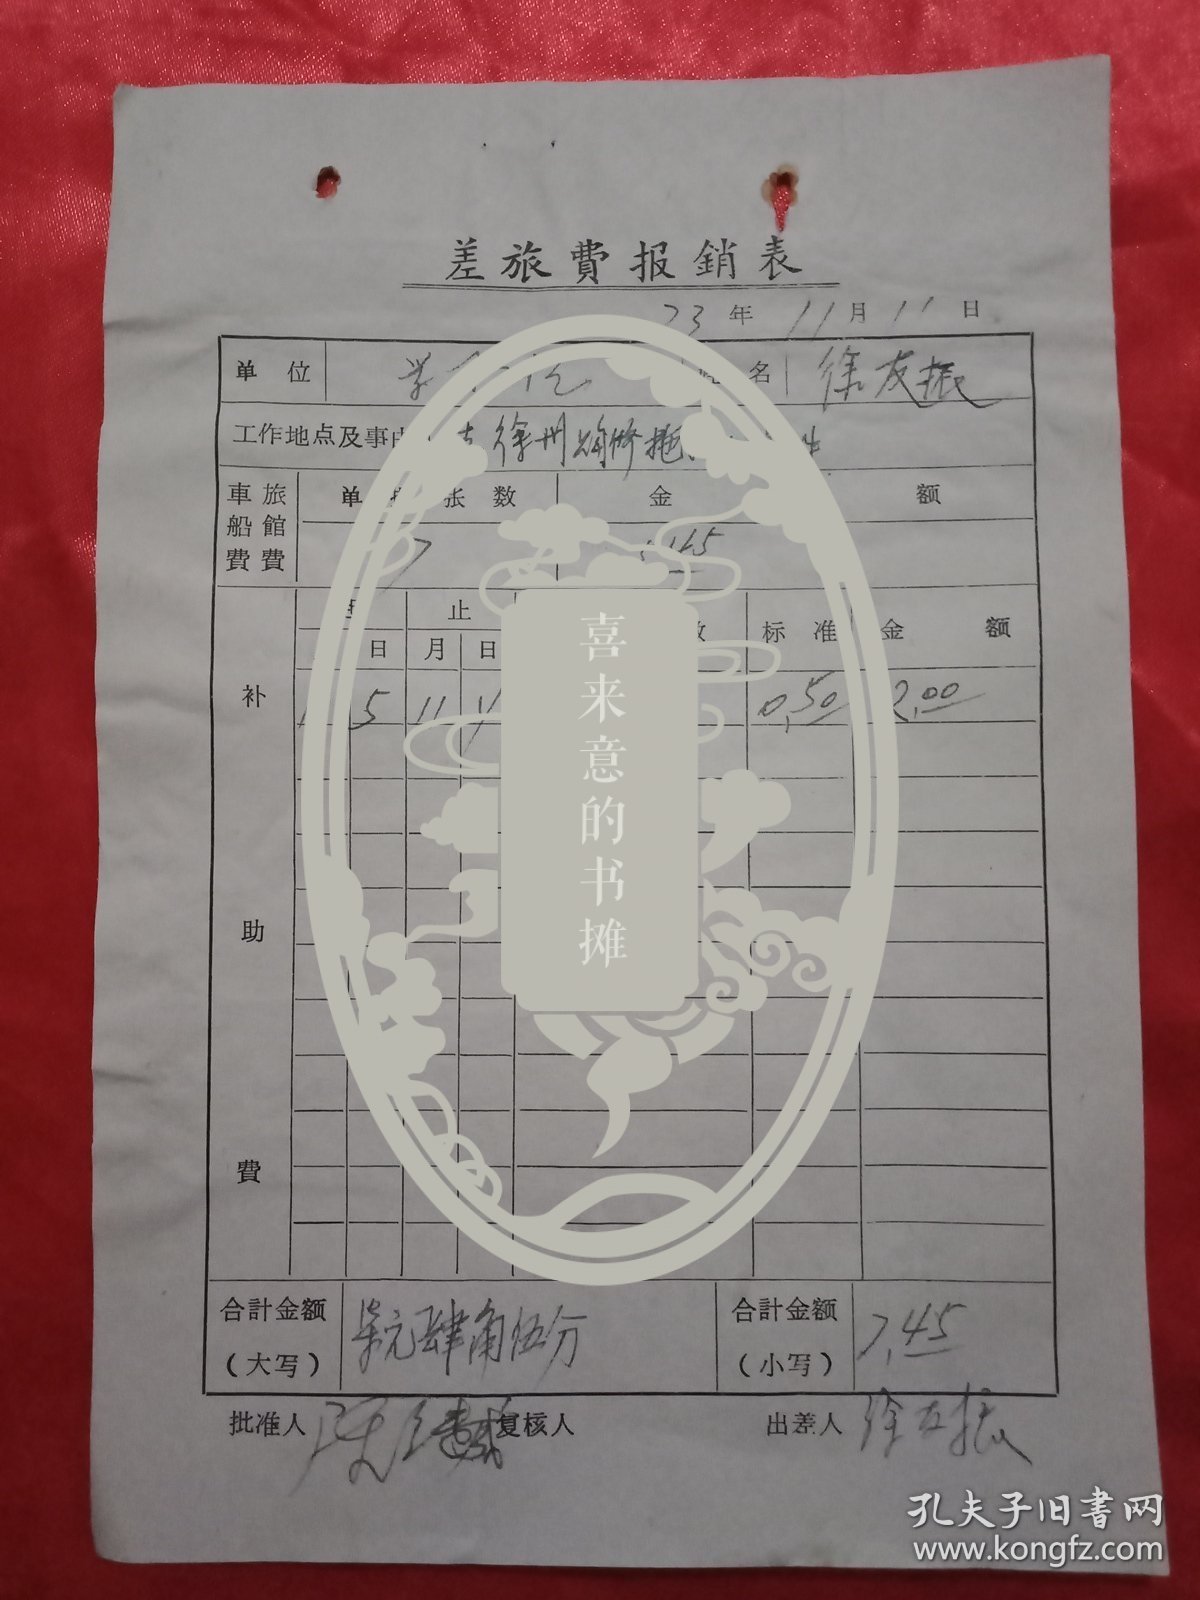 差旅費报銷表
73年11月11日
单位 名 徐友振
工作地点及事由 去徐州 修拖
車船費 旅館費 单 张数 金額
7 5.45
止
日 月 日 数 标准 金額
补助費
5 11 0.50 2.00
合計金額（大写） 柒元肆角伍分 合計金額（小写） 7.45
批准人 复核人 出差人 徐友振
喜来意的书摊
孔夫子旧书网
www.kongfz.com